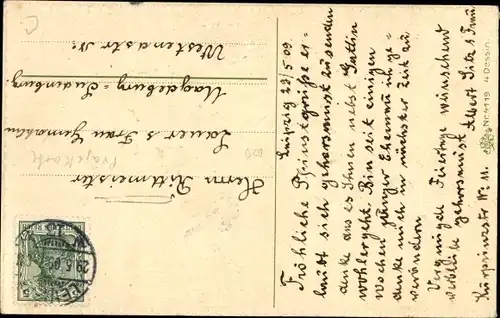 Leipzig 29/5 09.
Fröhliche Pfingstgrüsse er-
laubt sich gehorsamst zu senden
danke das es Ihnen nebst Gattin
wohlergeht. Bin seit einigen
Wochen junger Ehemann u. ge-
denke mich in nächster Zeit zu
verändern
Vergnügte Feiertage wünschend
verbleibe gehorsamst Albert Seitz & Frau
Kurprinzstr No 11.
Herrn Rittmeister
Sauer & Frau Gemahlin
Magdeburg-Sudenburg
Westendstr No
No 4119 14 Dessin